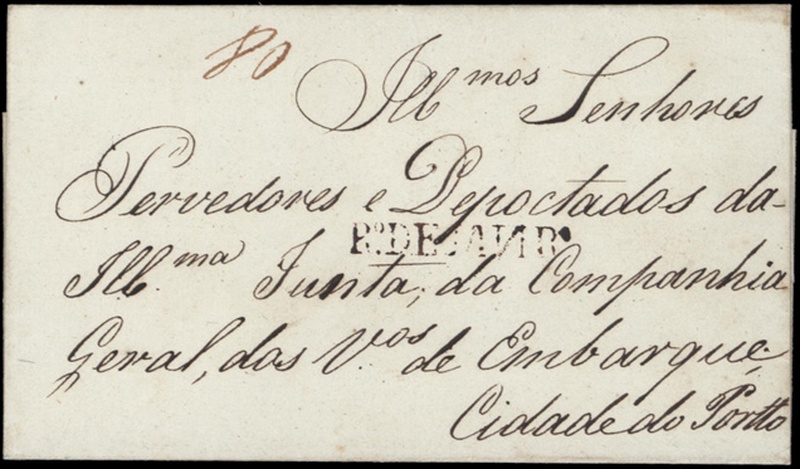 80
Ill.mos Senhores
Pervedores e Depoctados da
R.º DE JANR.º
Ill.ma Junta, da Companhia
Geral, dos V.os de Embarque,
Cidade do Portto